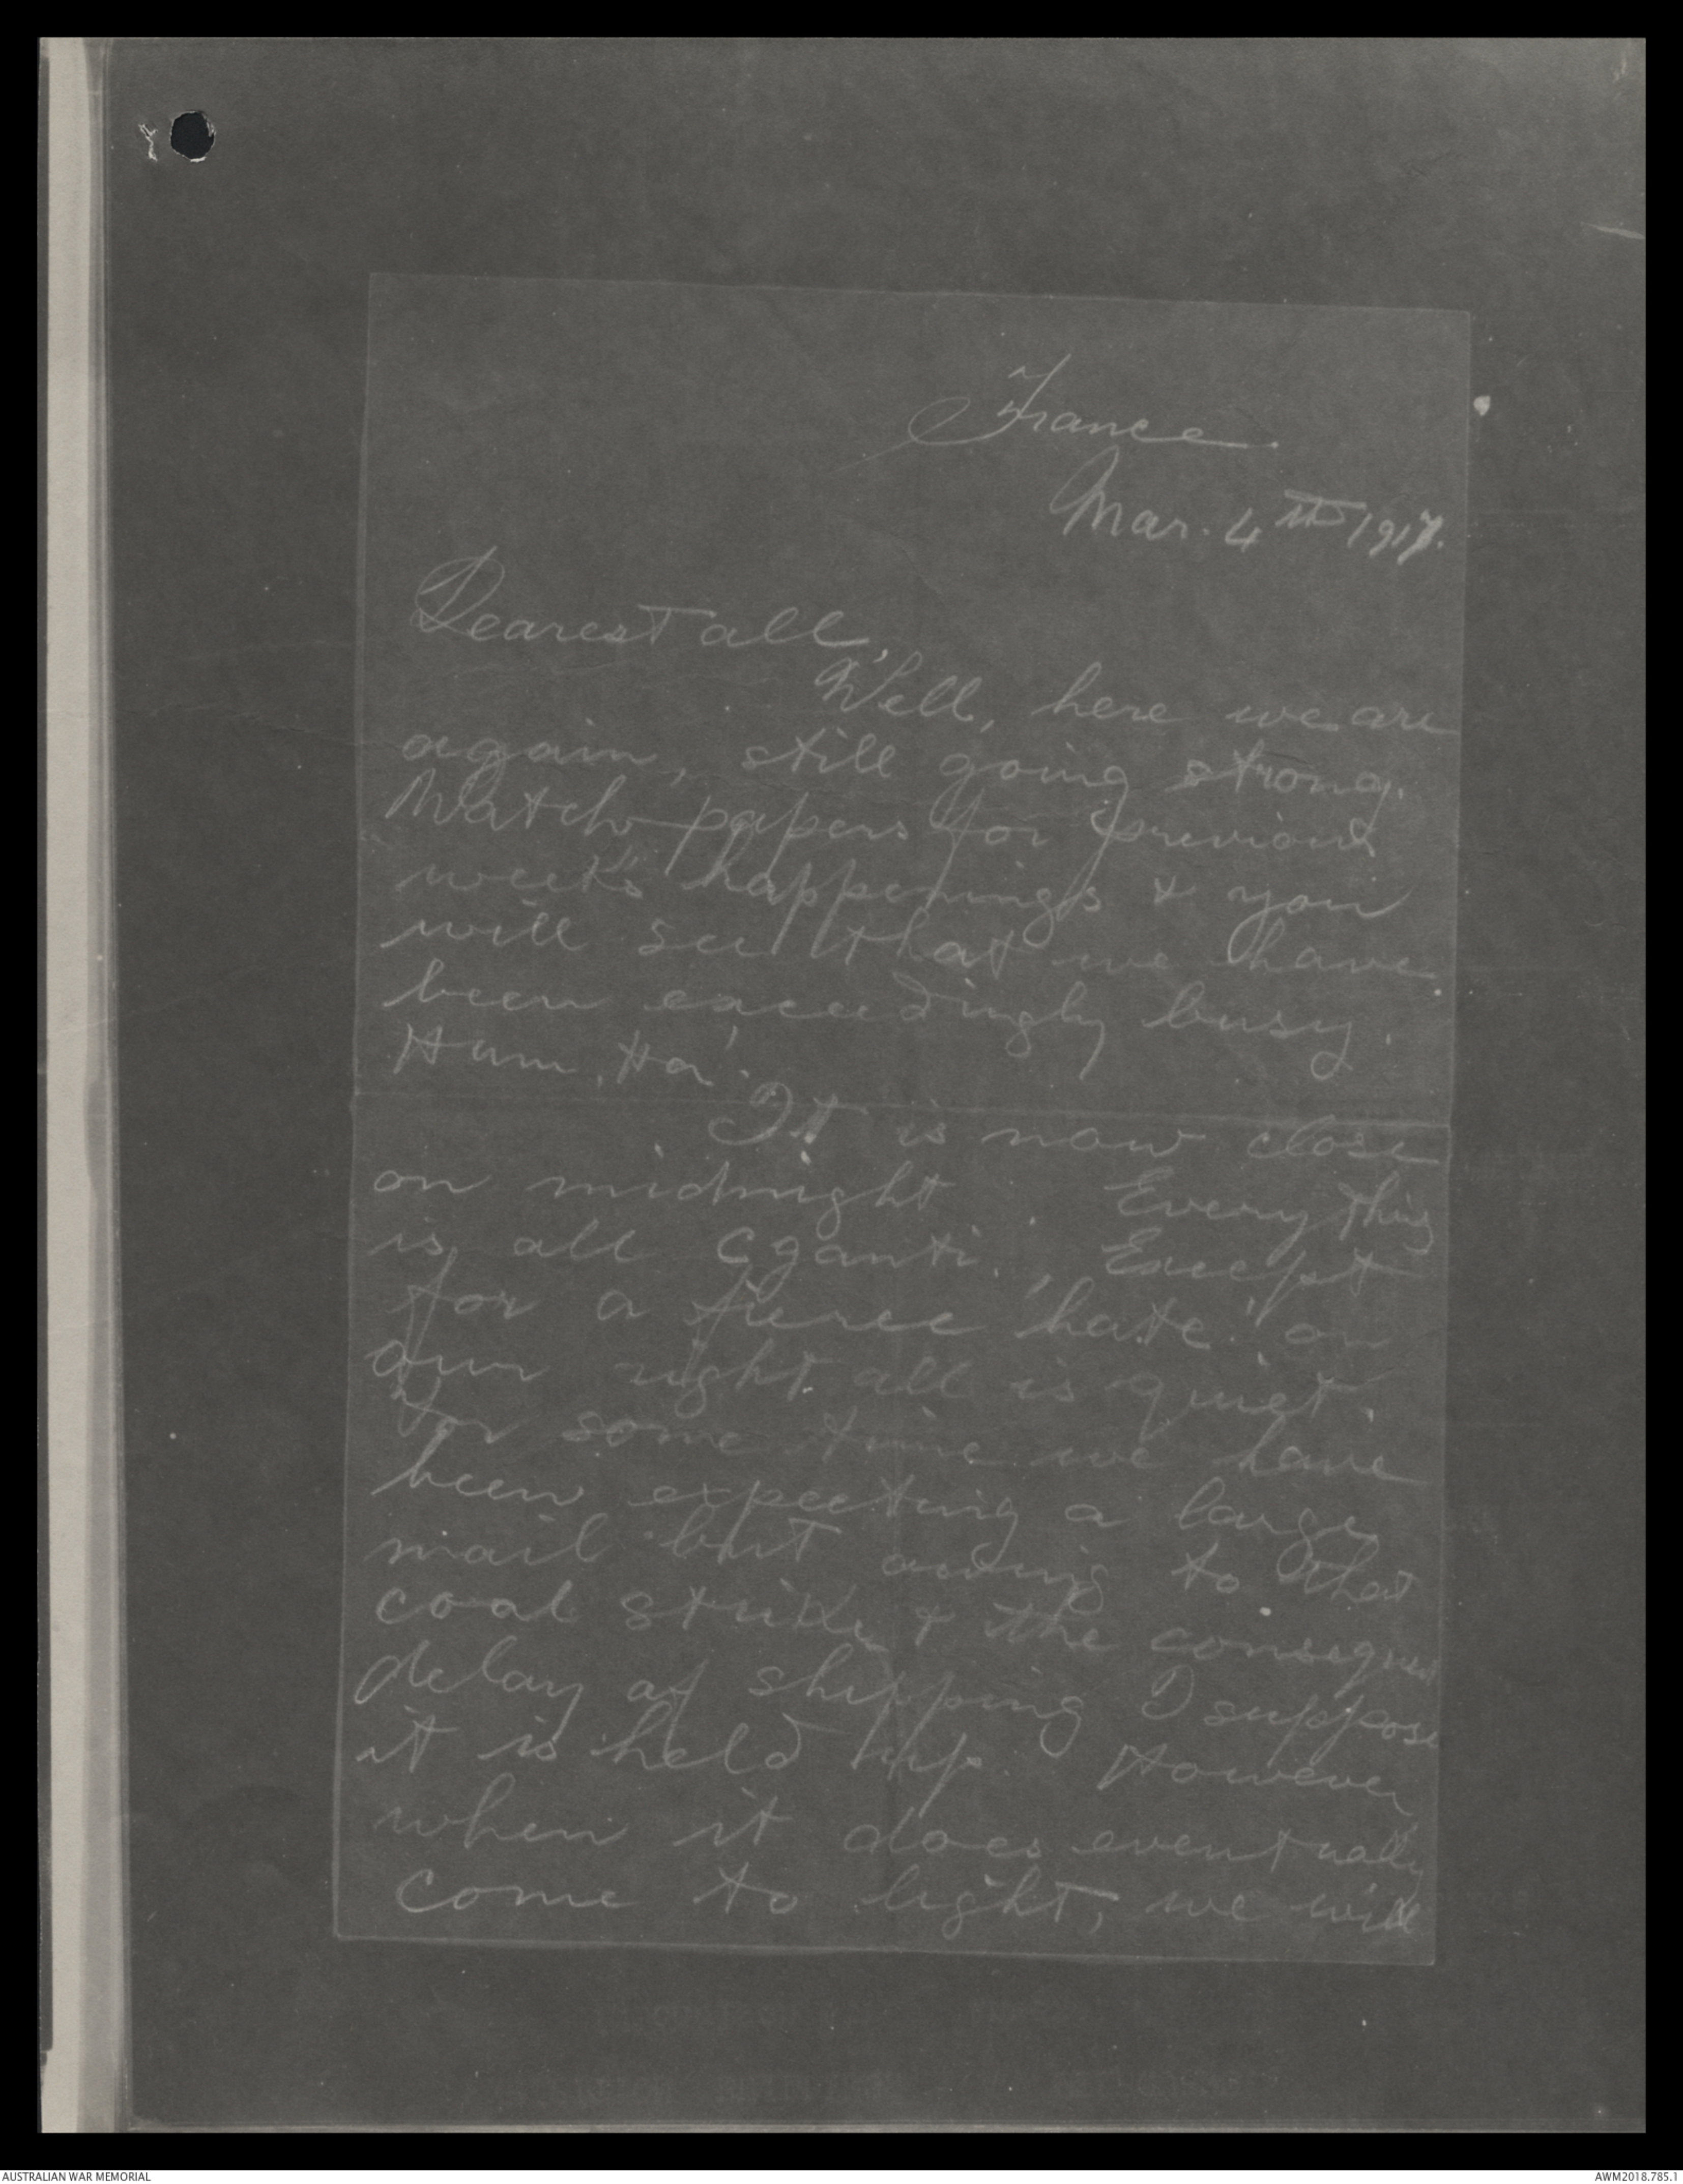 France
Mar. 4th 1917.
Dearest all,
Well, here we are
again, still going strong.
Watch papers for previous
week's happenings & you
will see that we have
been exceedingly busy.
Hum, Ha!
It is now close
on midnight. Everything
is all. Except
for a fierce 'hate' on
our right all is quiet.
For some time we have
been expecting a large
mail but owing to that
coal strike & the consequent
delay of shipping I suppose
it is held up. However,
when it does eventually
come to light, we will
AUSTRALIAN WAR MEMORIAL
AWM2018.785.1